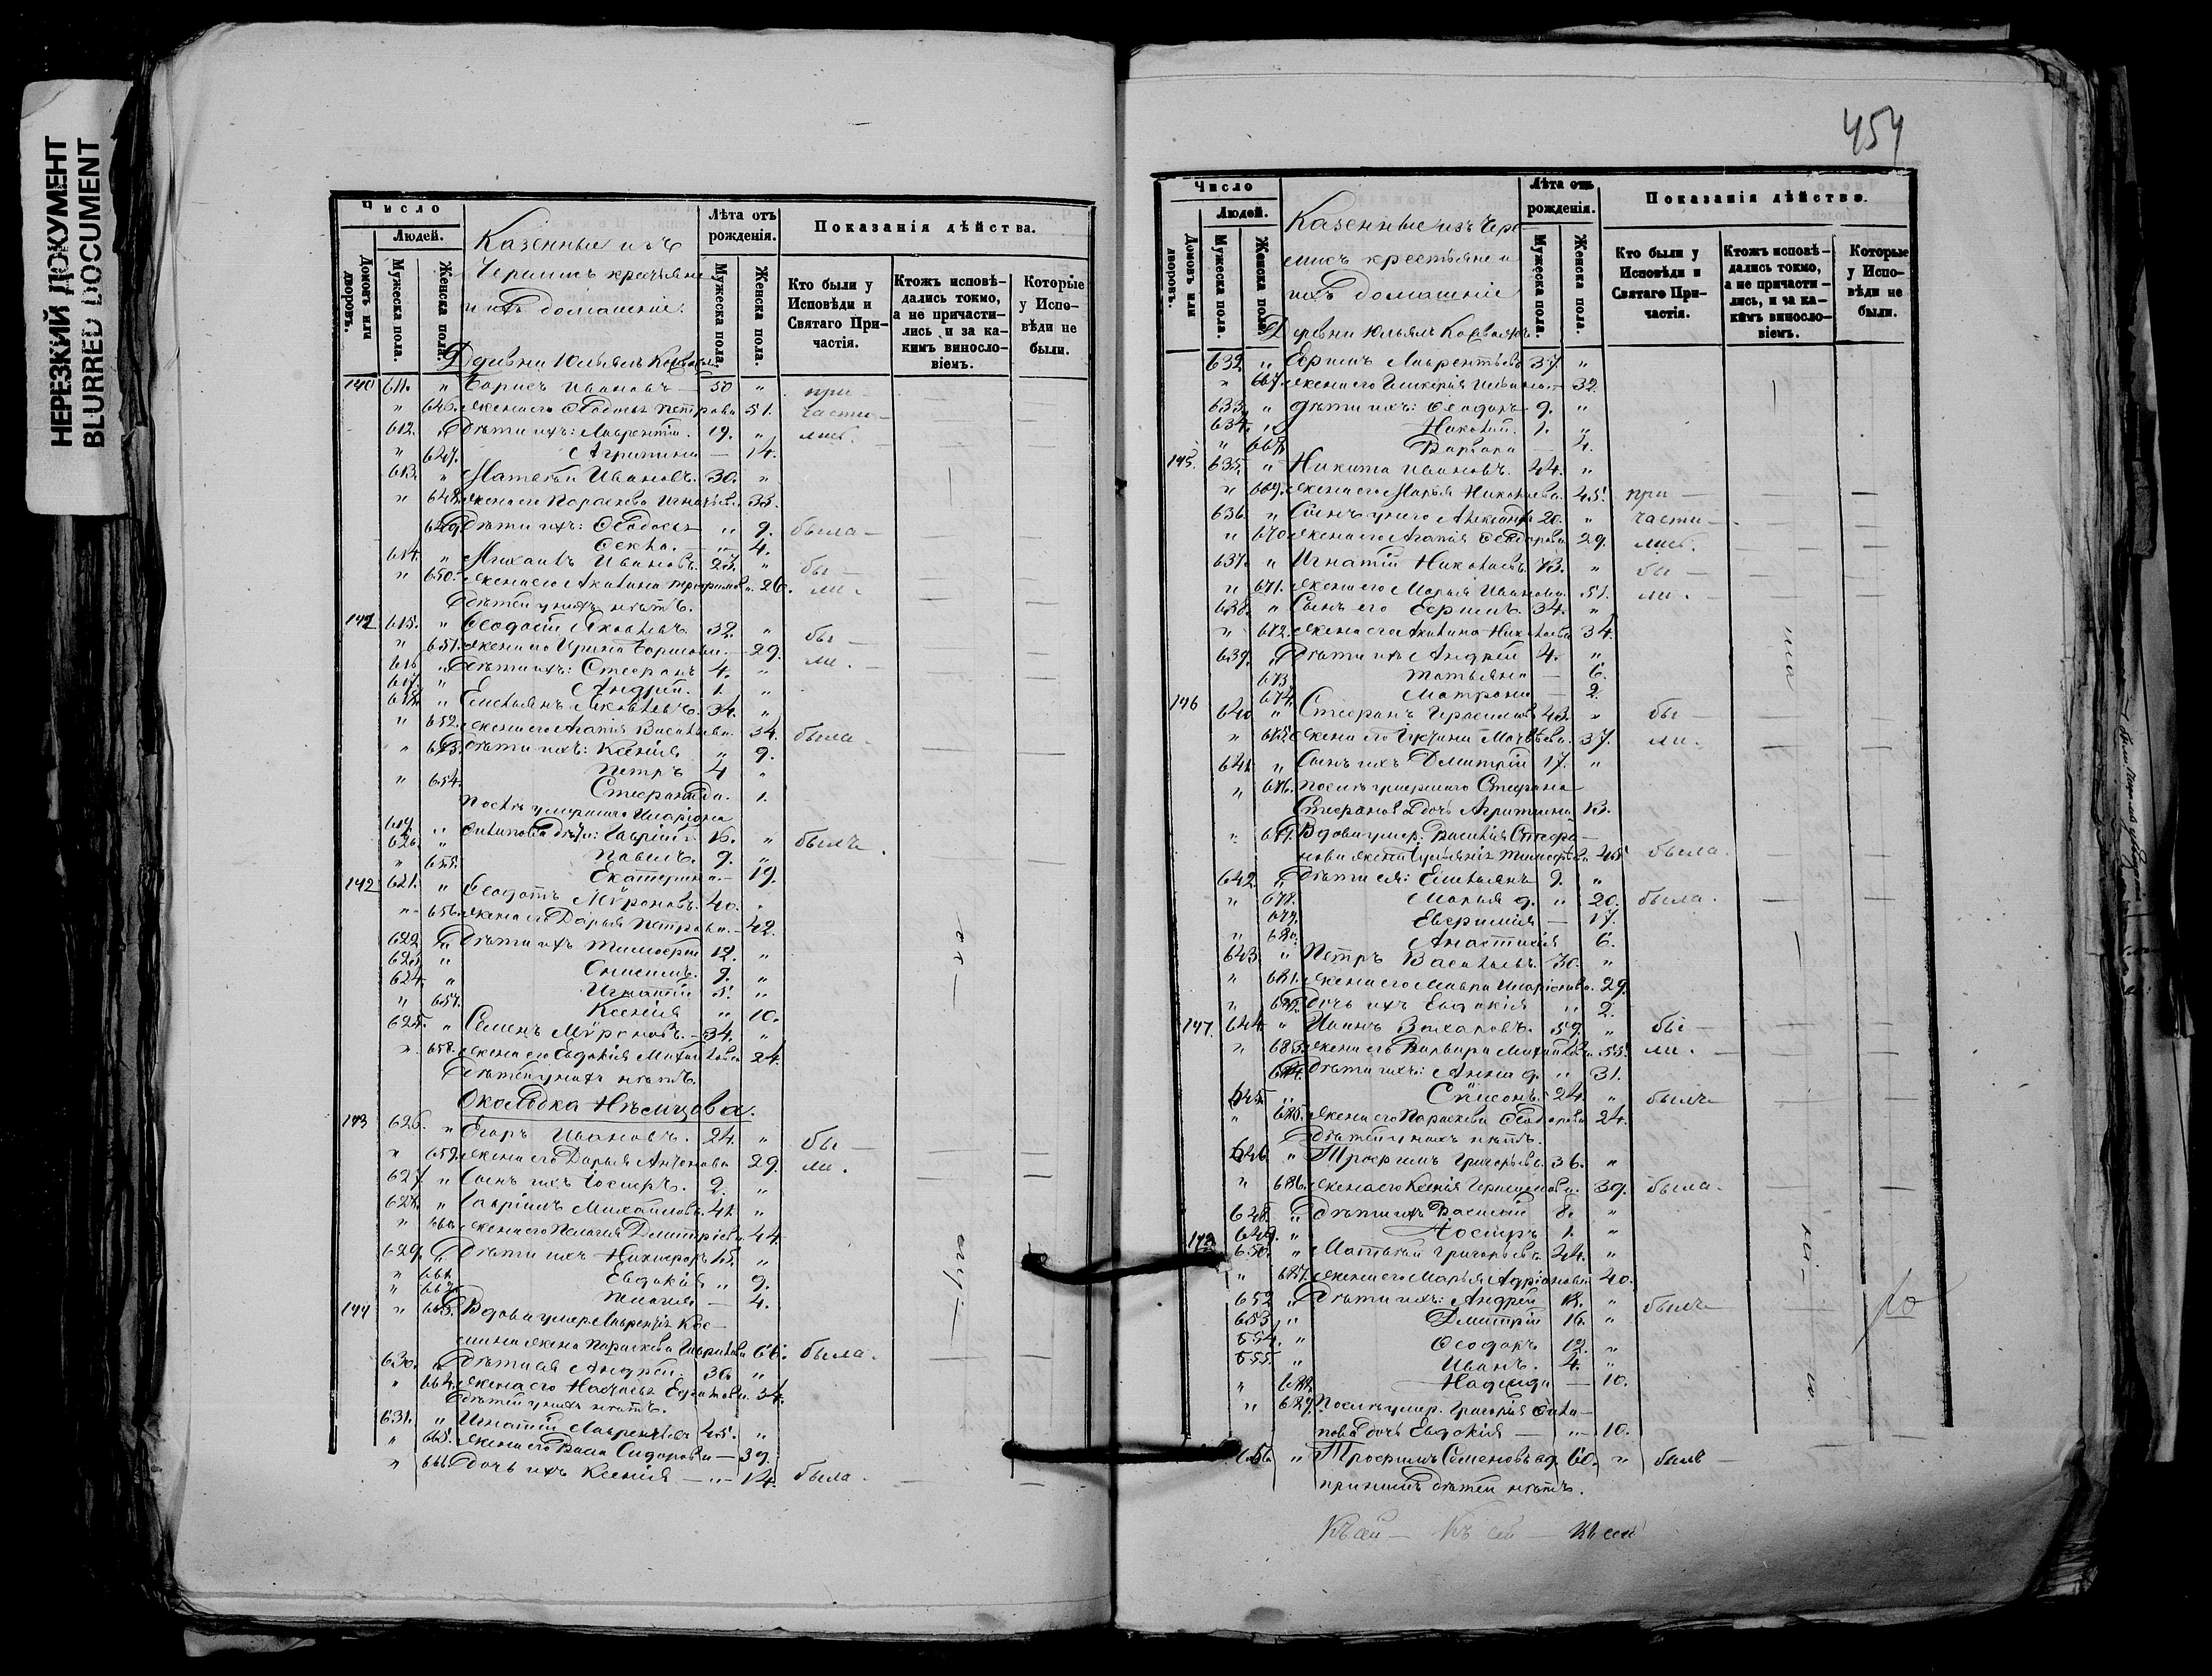 НЕРЕЗКИЙ ДОКУМЕНТ
BLURRED DOCUMENT
Число
Людей.
Домовъ или дворовъ.
Мужеска пола.
Женска пола.
Казенные изъ
Черемисъ крестьяне
и ихъ домашніе.
Деревни
Лѣта отъ рожденія.
Мужеска пола.
Женска пола.
Показанія дѣйства.
Кто были у Исповѣди и Святаго Причастія.
Ктожъ исповѣдались токмо, а не причастились и за какимъ винословіемъ.
Которые у Исповѣди не были.
140 611. " Борисъ Ивановъ 50 " при-
" 646. жена его Ѳедосья Петрова 51. части-
612. " Дѣти ихъ: Лаврентій. 19. " лись.
" 647. Агрипина — 14.
613. " Матвѣй Ивановъ. 30. "
" 648. жена его Параскева Игнатьева 33.
649. Дѣти ихъ: Ѳедосья " 9. была
Ѳекла. " 4.
614. " Михаилъ Ивановъ. 23. " бы-
" 650. жена его Акилина Трофимова. 26. ли.
Дѣтей у нихъ нѣтъ.
141 615. " Ѳеодосій Яковлевъ 32. " бы-
" 651. жена его Ирина Борисова. — 29. ли.
616 " Дѣти ихъ: Стефанъ 4. "
617. " Андрей. 1. "
618. " Емельянъ Яковлевъ. 34. "
" 652. жена его Агапія Васильева. 34. была.
" 653. дѣти ихъ: Ксенія " 9.
Петръ 4 "
" 654. Стефанида. 1.
Послѣ умершаго Иларіона
619. " Антипова дѣти: Гавріилъ 16. " былъ.
620. " Павелъ. 9. "
" 655. Екатерина — 19.
142 621. " Ѳеодотъ Мѵроновъ. 40. "
" 656. жена его Дарья Петрова. — 42.
622. " Дѣти ихъ Тимофей 12. "
623. " Онисимъ. 9. "
624. " Игнатій 5. "
" 657. Ксенія " 10.
625. " Семенъ Мѵроновъ. 34. "
" 658. жена его Евдокія Михайлова 24.
Дѣтей у нихъ нѣтъ.
Околодка Нѣмцова.
143 626. " Егоръ Ивановъ. 24. " бы-
" 659. жена его Дарья Антонова 29. ли.
627. " Сынъ ихъ Іосифъ. 2. "
628. " Гавріилъ Михайловъ. 41. "
" 660. жена его Пелагія Димитріева 44.
629. " Дѣти ихъ Никифоръ 15. "
" 661. Евдокія " 9.
" 662. — 4.
144 " 663. Вдова умер. Лаврентія Кос-
мина жена Параскева Гаврилова 61. была.
630. " Дѣти ея Андрей 30. "
" 664. жена его Наталья Ефимова. 34.
Дѣтей у нихъ нѣтъ.
631. " Игнатій Лаврентьевъ 45. "
" 665. жена его Васса Сидорова — 39.
" 666. дочь ихъ Ксенія — " — 14. была.
454
Число
Людей.
Домовъ или дворовъ.
Мужеска пола.
Женска пола.
Казенные изъ Чере-
мисъ крестьяне и
ихъ домашніе
Деревни
Лѣта отъ рожденія.
Мужеска пола.
Женска пола.
Показанія дѣйства.
Кто были у Исповѣди и Святаго Причастія.
Ктожъ исповѣдались токмо, а не причастились, и за какимъ винословіемъ.
Которые у Исповѣди не были.
632. " Ефимъ Лаврентьевъ 37. "
" 667. жена его Гликерія Иванова — 32.
633. " дѣти ихъ: Ѳеодоръ 9. "
634. " Николай. 1. "
" 668. Варвара — 4.
145. 635. " Никита Ивановъ. 44. "
" 669. жена его Марья Николаева. 45. при —
636. " Сынъ у него Александръ 20. " части-
" 670 жена его Агапія Ѳедорова 29. лись.
637. " Игнатій Николаевъ. 73. " бы-
" 671. жена его Марья Иванова. 51. ли.
638. " Сынъ его Ефимъ. 34. "
" 672. жена его Акилина Николаева 34.
639. " Дѣти ихъ Андрей 4. "
673 Татьяна — 6.
674. Матрона — 2.
146 640 " Стефанъ Герасимовъ 43. " бы —
" 675. жена его Іустина Матвѣева. 37. ли.
641. " Сынъ ихъ Димитрій 17. "
" 676. Послѣ умершаго Стефана
Стефанова дочь Агрипина 13.
" 677. Вдова умер. Василія Стефа-
нова жена Іуліанія Тимофеева. 45 была.
642. " Дѣти ея: Емельянъ 9. "
" 678. Марья д. " 20. была.
679. Евфимія — 17.
" 680. Анастасія 6.
643. " Петръ Васильевъ. 30. "
" 681. жена его Мавра Иларіонова. 29.
" 682. Дочь ихъ Евдокія " 2.
147. 644. " Иванъ Захаровъ. 59. " бы —
" 683. жена его Варвара Михайлова. 55. ли.
684. Дѣти ихъ: Анна д. " 31.
645. " Симеонъ. 24. " былъ
" 685. жена его Параскева Ѳедорова 24.
Дѣтей у нихъ нѣтъ.
646. " Трофимъ Григорьевъ 36. "
" 686. жена его Ксенія 39. была.
648. " Дѣти ихъ Василій 8. "
649. " Іосифъ 1. "
148 650. " Матвѣй Григорьевъ 44. "
" 687. жена его Марья Адріанова 40.
652 " Дѣти ихъ: Андрей 18. " былъ
653 " Димитрій 16. "
654. " Ѳеодоръ 12. "
655. " Иванъ. 4. "
" 688. Надежда — 10.
" 689. Послѣ умер. Григорія Анти-
пова дочь Евдокія — " — 10.
656. " Трофимъ Семеновъ вд. 60. " былъ —
при немъ дѣтей нѣтъ.
Къ сей — Къ сей — Къ сей